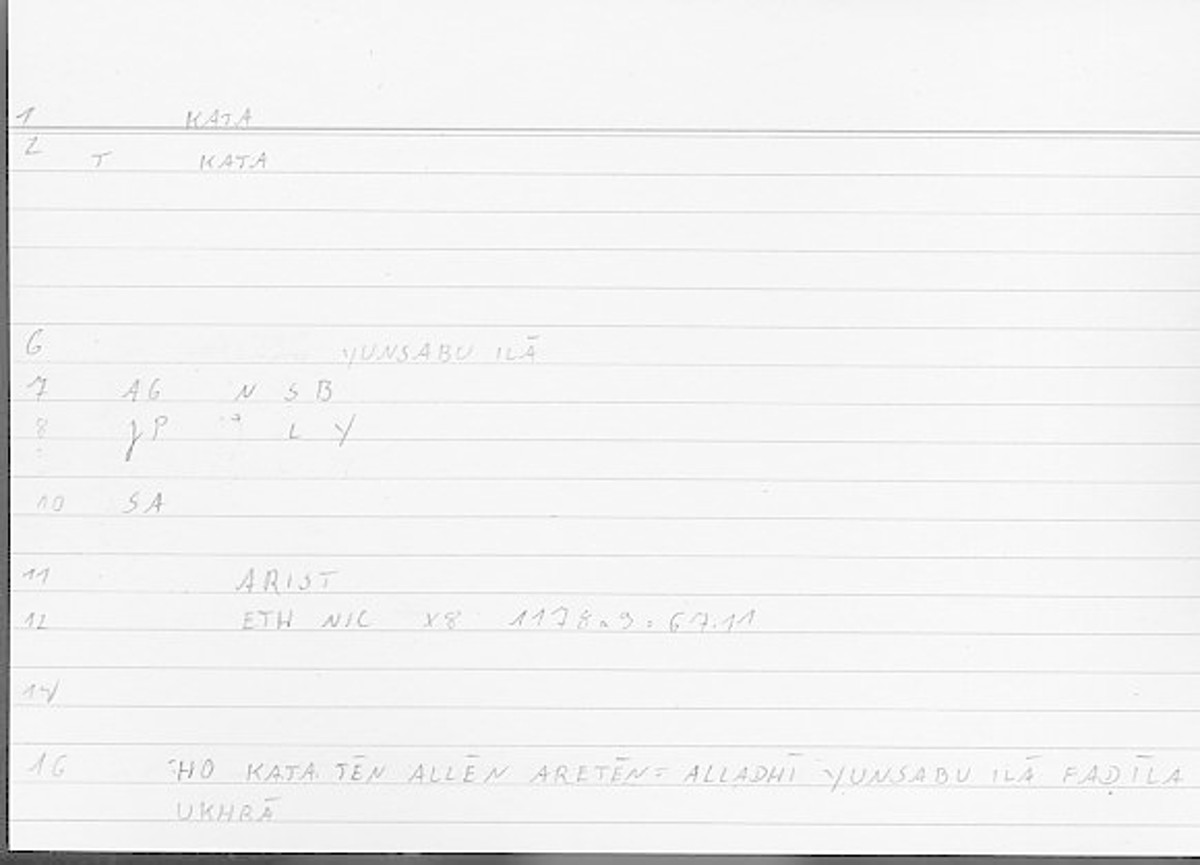 1 KATA
2 T KATA
6 YUNSABU ILĀ
7 AG N S B
8 P L Y
10 SA
11 ARIST
12 ETH NIC X8 1178a9 = 67.11
14
16 HO KATA TĒN ALLĒN ARETĒN = ALLADHĪ YUNSABU ILĀ FAḌĪLA
UKHRĀ